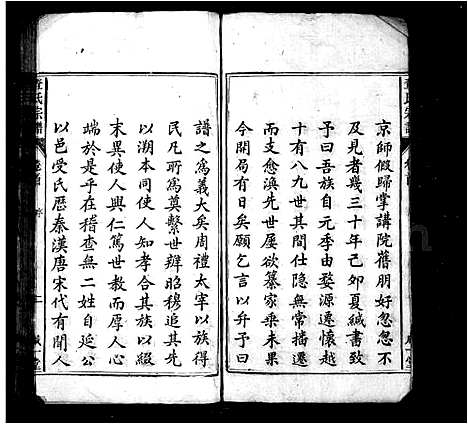 京師假歸掌講院舊朋好忽忽不
及見者幾三十年己卯夏緘書致
予曰吾族自元季由婺源遷懷越
十有八九世其間仕隱無常播遷
而支愈渙先世屢欲纂家乗未果
今開局有日矣願乞言以弁予曰
譜之為義大矣周禮太宰以族得
民凡所為奠繫世辨昭穆追其先
以溯本同使人知孝合其族以綴
末異使人興仁篤世教而厚人心
端於是乎在稽查無二姓自延公
以邑受氏歷秦漢唐宋代有聞人
氏宗譜
卷首
序